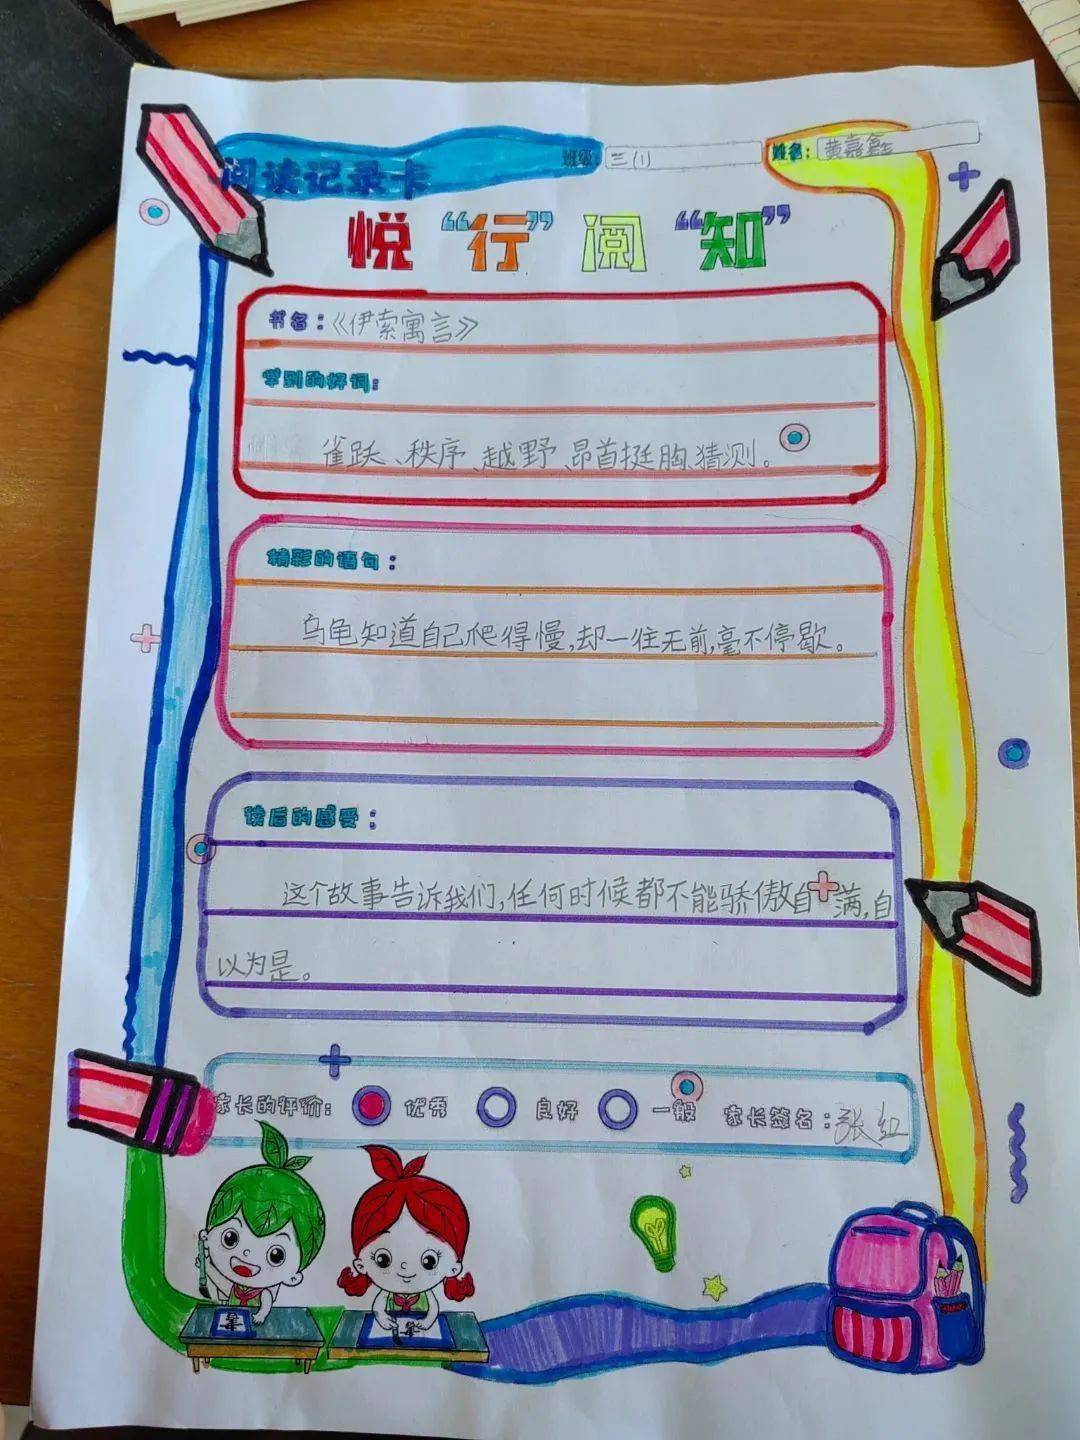 阅读记录卡 班级：三(1) 姓名：黄嘉鑫
悦“行”阅“知”
书名：《伊索寓言》
学到的好词：
雀跃、秩序、越野、昂首挺胸、猜测。
精彩的语句：
乌龟知道自己爬得慢，却一往无前，毫不停歇。
读后的感受：
这个故事告诉我们，任何时候都不能骄傲自满，自
以为是。
家长的评价： 优秀 良好 一般 家长签名：张红